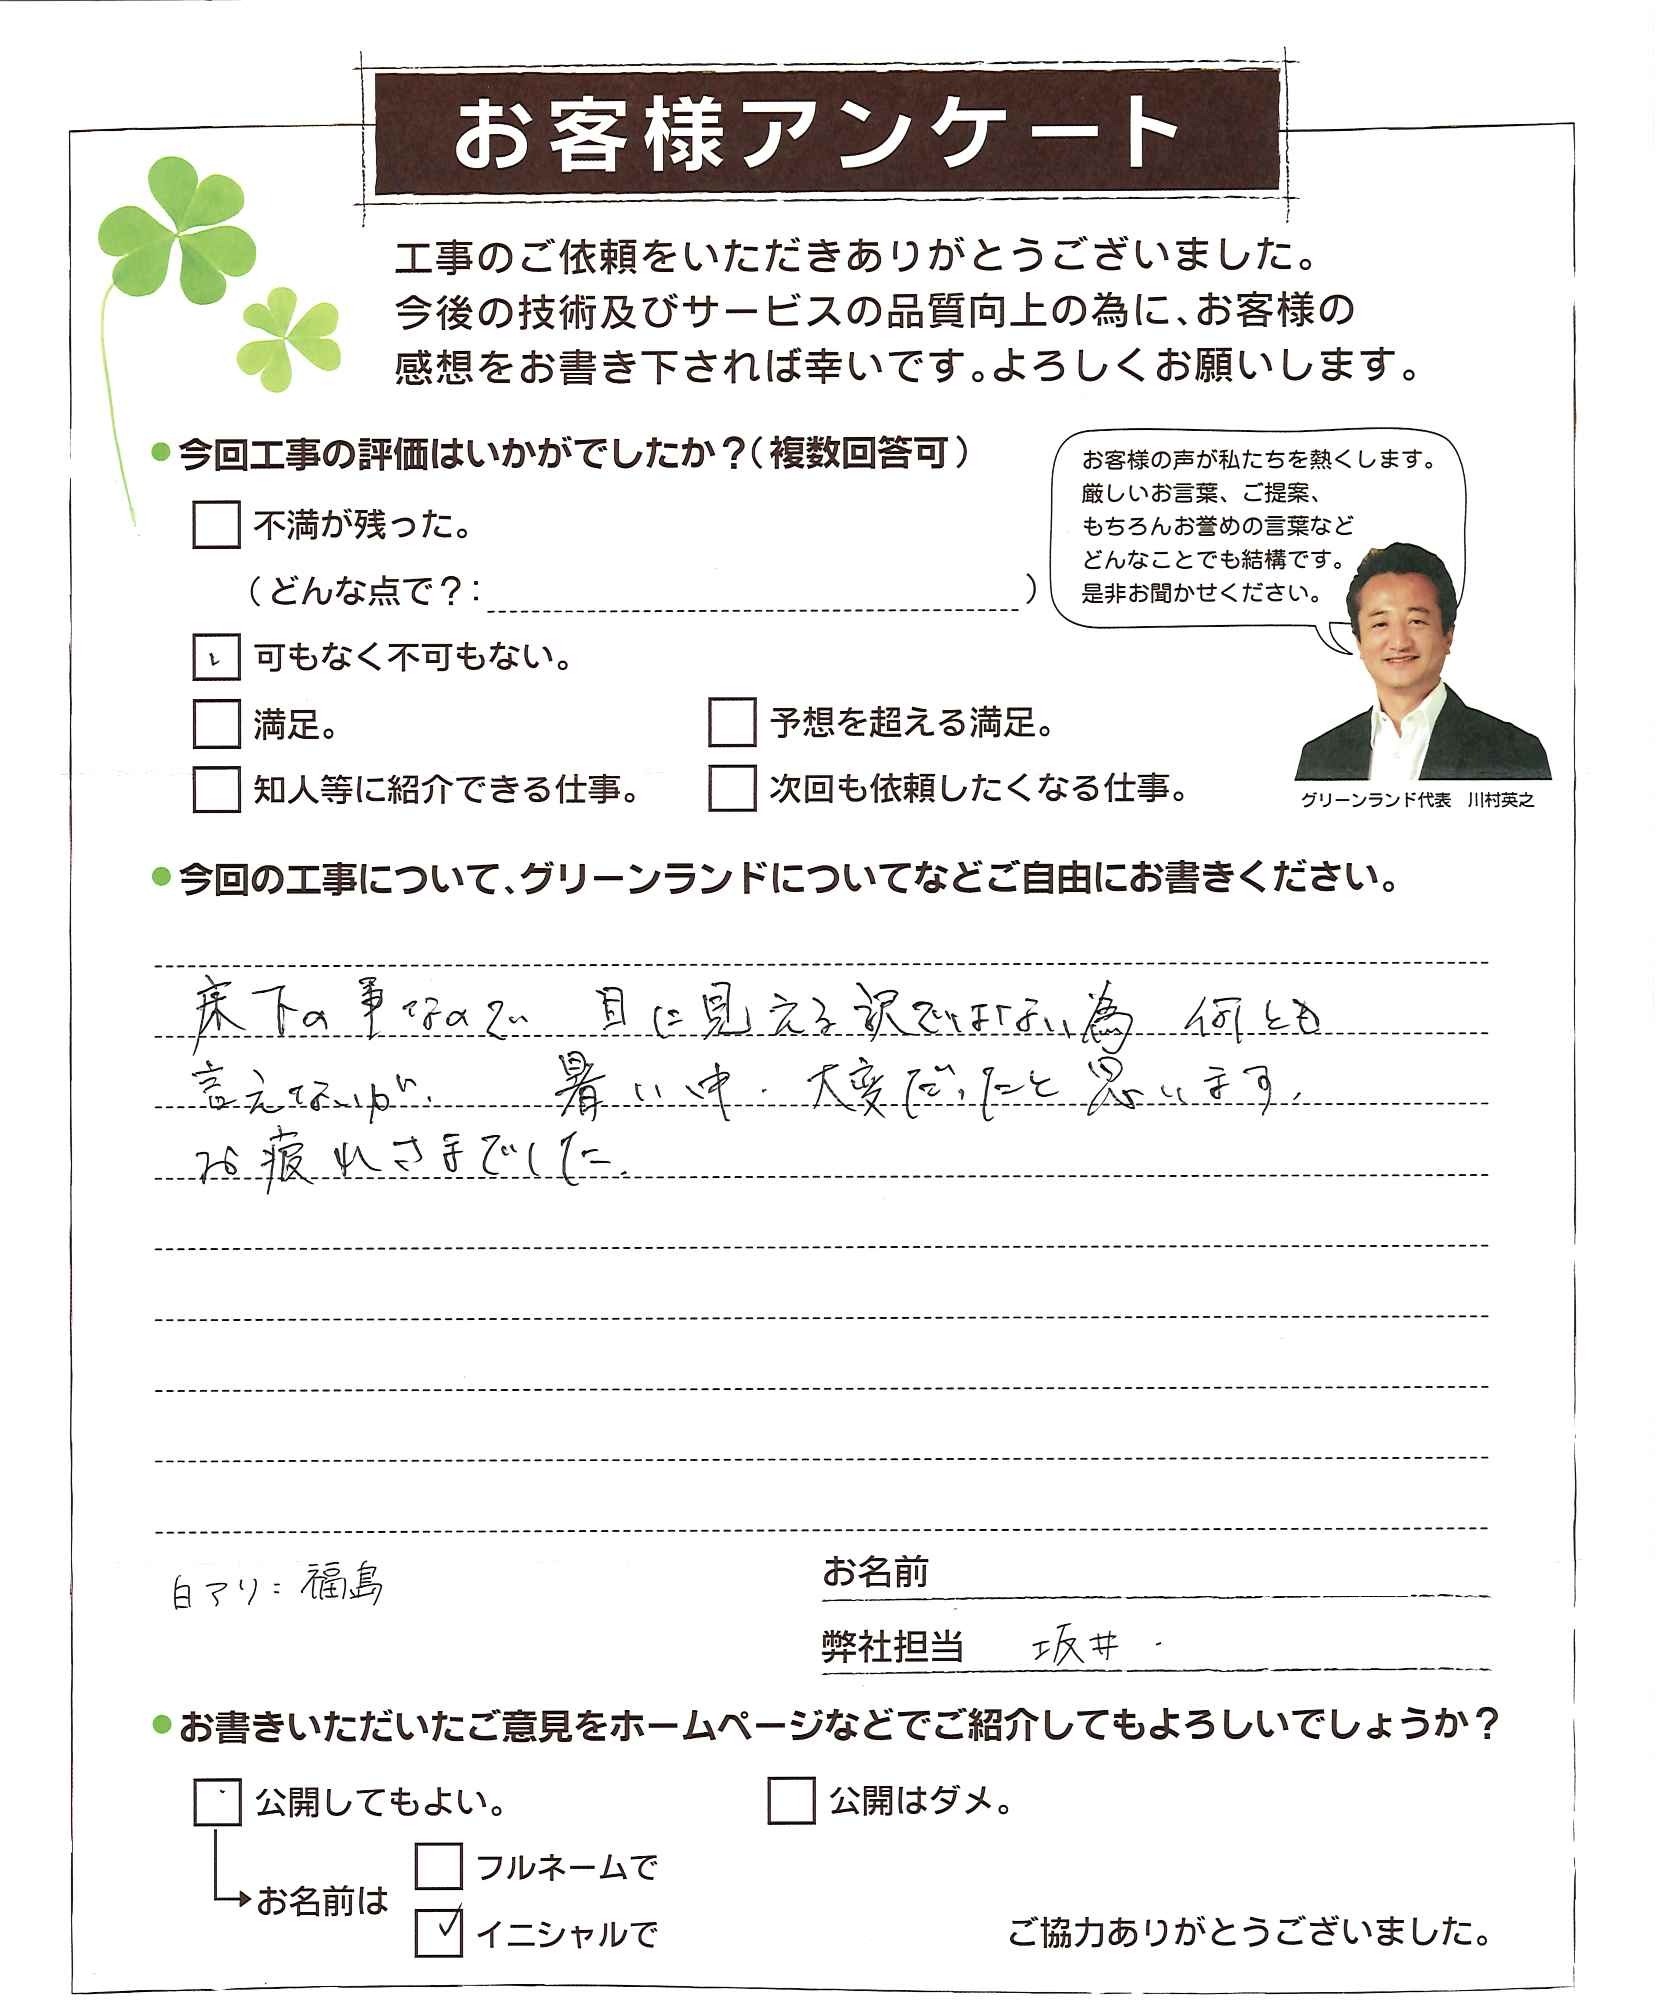 お客様アンケート
工事のご依頼をいただきありがとうございました。
今後の技術及びサービスの品質向上の為に、お客様の
感想をお書き下されば幸いです。よろしくお願いします。
●今回工事の評価はいかがでしたか？（複数回答可）
不満が残った。
（どんな点で？：　）
可もなく不可もない。
満足。
予想を超える満足。
知人等に紹介できる仕事。
次回も依頼したくなる仕事。
お客様の声が私たちを熱くします。
厳しいお言葉、ご提案、
もちろんお誉めの言葉など
どんなことでも結構です。
是非お聞かせください。
グリーンランド代表　川村英之
●今回の工事について、グリーンランドについてなどご自由にお書きください。
床下の事なので 目に見える訳ではない為 何とも
言えないが、 暑い中、大変だったと思います。
お疲れさまでした。
白アリ：福島
お名前
弊社担当 坂井
●お書きいただいたご意見をホームページなどでご紹介してもよろしいでしょうか？
公開してもよい。
公開はダメ。
お名前は
フルネームで
イニシャルで
ご協力ありがとうございました。